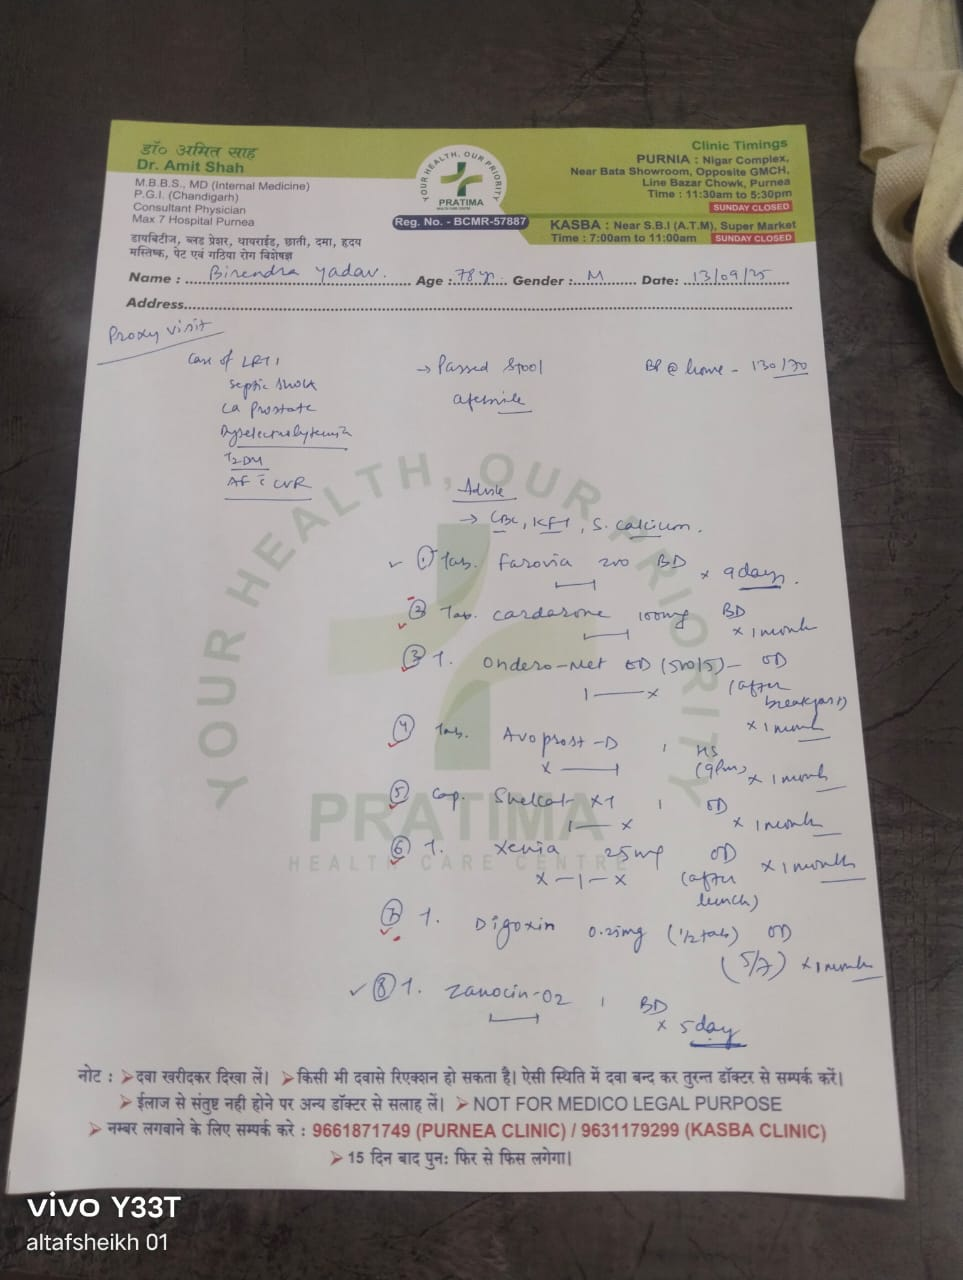 डॉ० अमित साह
Dr. Amit Shah
M.B.B.S., MD (Internal Medicine)
P.G.I. (Chandigarh)
Consultant Physician
Max 7 Hospital Purnea
डायबिटीज, ब्लड प्रेशर, थायराईड, छाती, दमा, हृदय
मस्तिष्क, पेट एवं गठिया रोग विशेषज्ञ
YOUR HEALTH, OUR PRIORITY
PRATIMA
HEALTH CARE CENTRE
Reg. No. - BCMR-57887
Clinic Timings
PURNIA : Nigar Complex,
Near Bata Showroom, Opposite GMCH,
Line Bazar Chowk, Purnea
Time : 11:30am to 5:30pm
SUNDAY CLOSED
KASBA : Near S.B.I (A.T.M), Super Market
Time : 7:00am to 11:00am SUNDAY CLOSED
Name : Birendra Yadav. Age : 78 yr. Gender : M Date: 13/09/25
Address
Proxy visit
Case of LRTI → Passed Stool BP @ home - 130/70
Septic Shock afebrile
Ca Prostate
Dyselectrolytemia
T2DM
AF c̄ CVR
Advise
→ CBC, KFT, S. Calcium.
① Tab. Farovia 200 BD x 9 days.
② Tab. Cardarone 100mg BD
x 1 month
③ T. Ondero-Met (500/5) - OD
1 — x (after breakfast)
x 1 month
④ Tab. Avoprost-D 1 HS
x — 1 (9Pm) x 1 month
⑤ Cap. Shelcal XT 1 OD
1 — x x 1 month
⑥ T. Xenia 25mg OD x 1 month
x - 1 - x (after lunch)
⑦ T. Digoxin 0.25mg (1/2 tab) OD
(5/7) x 1 month
⑧ T. Zanocin-OZ 1 BD
x 5 day
YOUR HEALTH, OUR PRIORITY
PRATIMA
HEALTH CARE CENTRE
नोट : ➤ दवा खरीदकर दिखा लें। ➤ किसी भी दवासे रिएक्शन हो सकता है। ऐसी स्थिति में दवा बन्द कर तुरन्त डॉक्टर से सम्पर्क करें।
➤ ईलाज से संतुष्ट नही होने पर अन्य डॉक्टर से सलाह लें। ➤ NOT FOR MEDICO LEGAL PURPOSE
➤ नम्बर लगवाने के लिए सम्पर्क करे : 9661871749 (PURNEA CLINIC) / 9631179299 (KASBA CLINIC)
➤ 15 दिन बाद पुनः फिर से फिस लगेगा।
vivo Y33T
altafsheikh 01